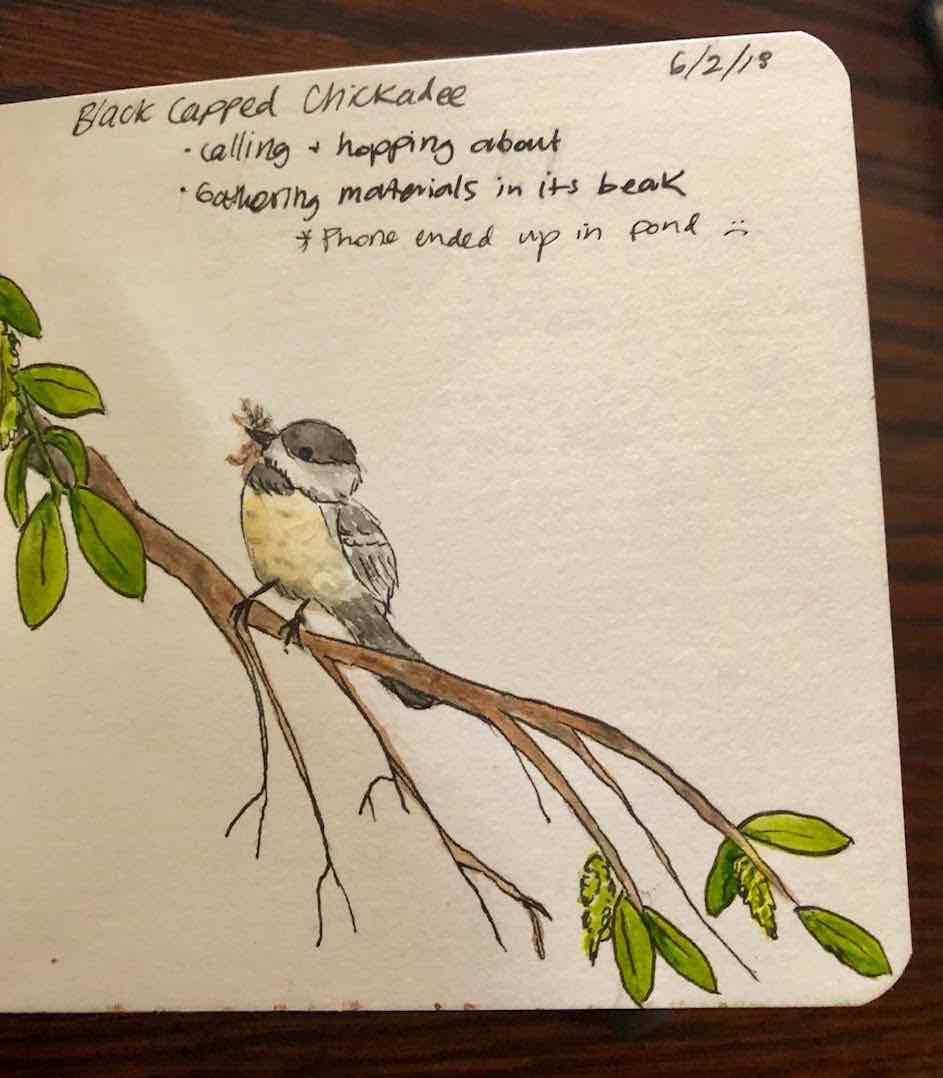 6/2/18
Black Capped Chickadee
· calling + hopping about
· Gathering materials in its beak
* Phone ended up in pond :(